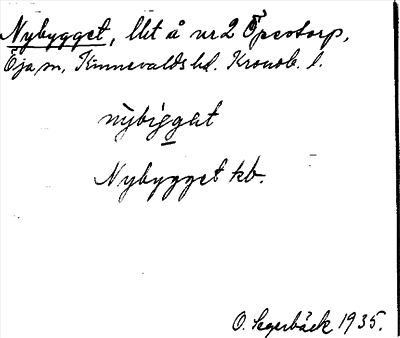 Nybygget, llt å nr 2 Öpestorp,
Öja sn, Kinnevalds hd. Kronob. l.
nybiggat
Nybygget kb.
O. Segerbäck 1935.